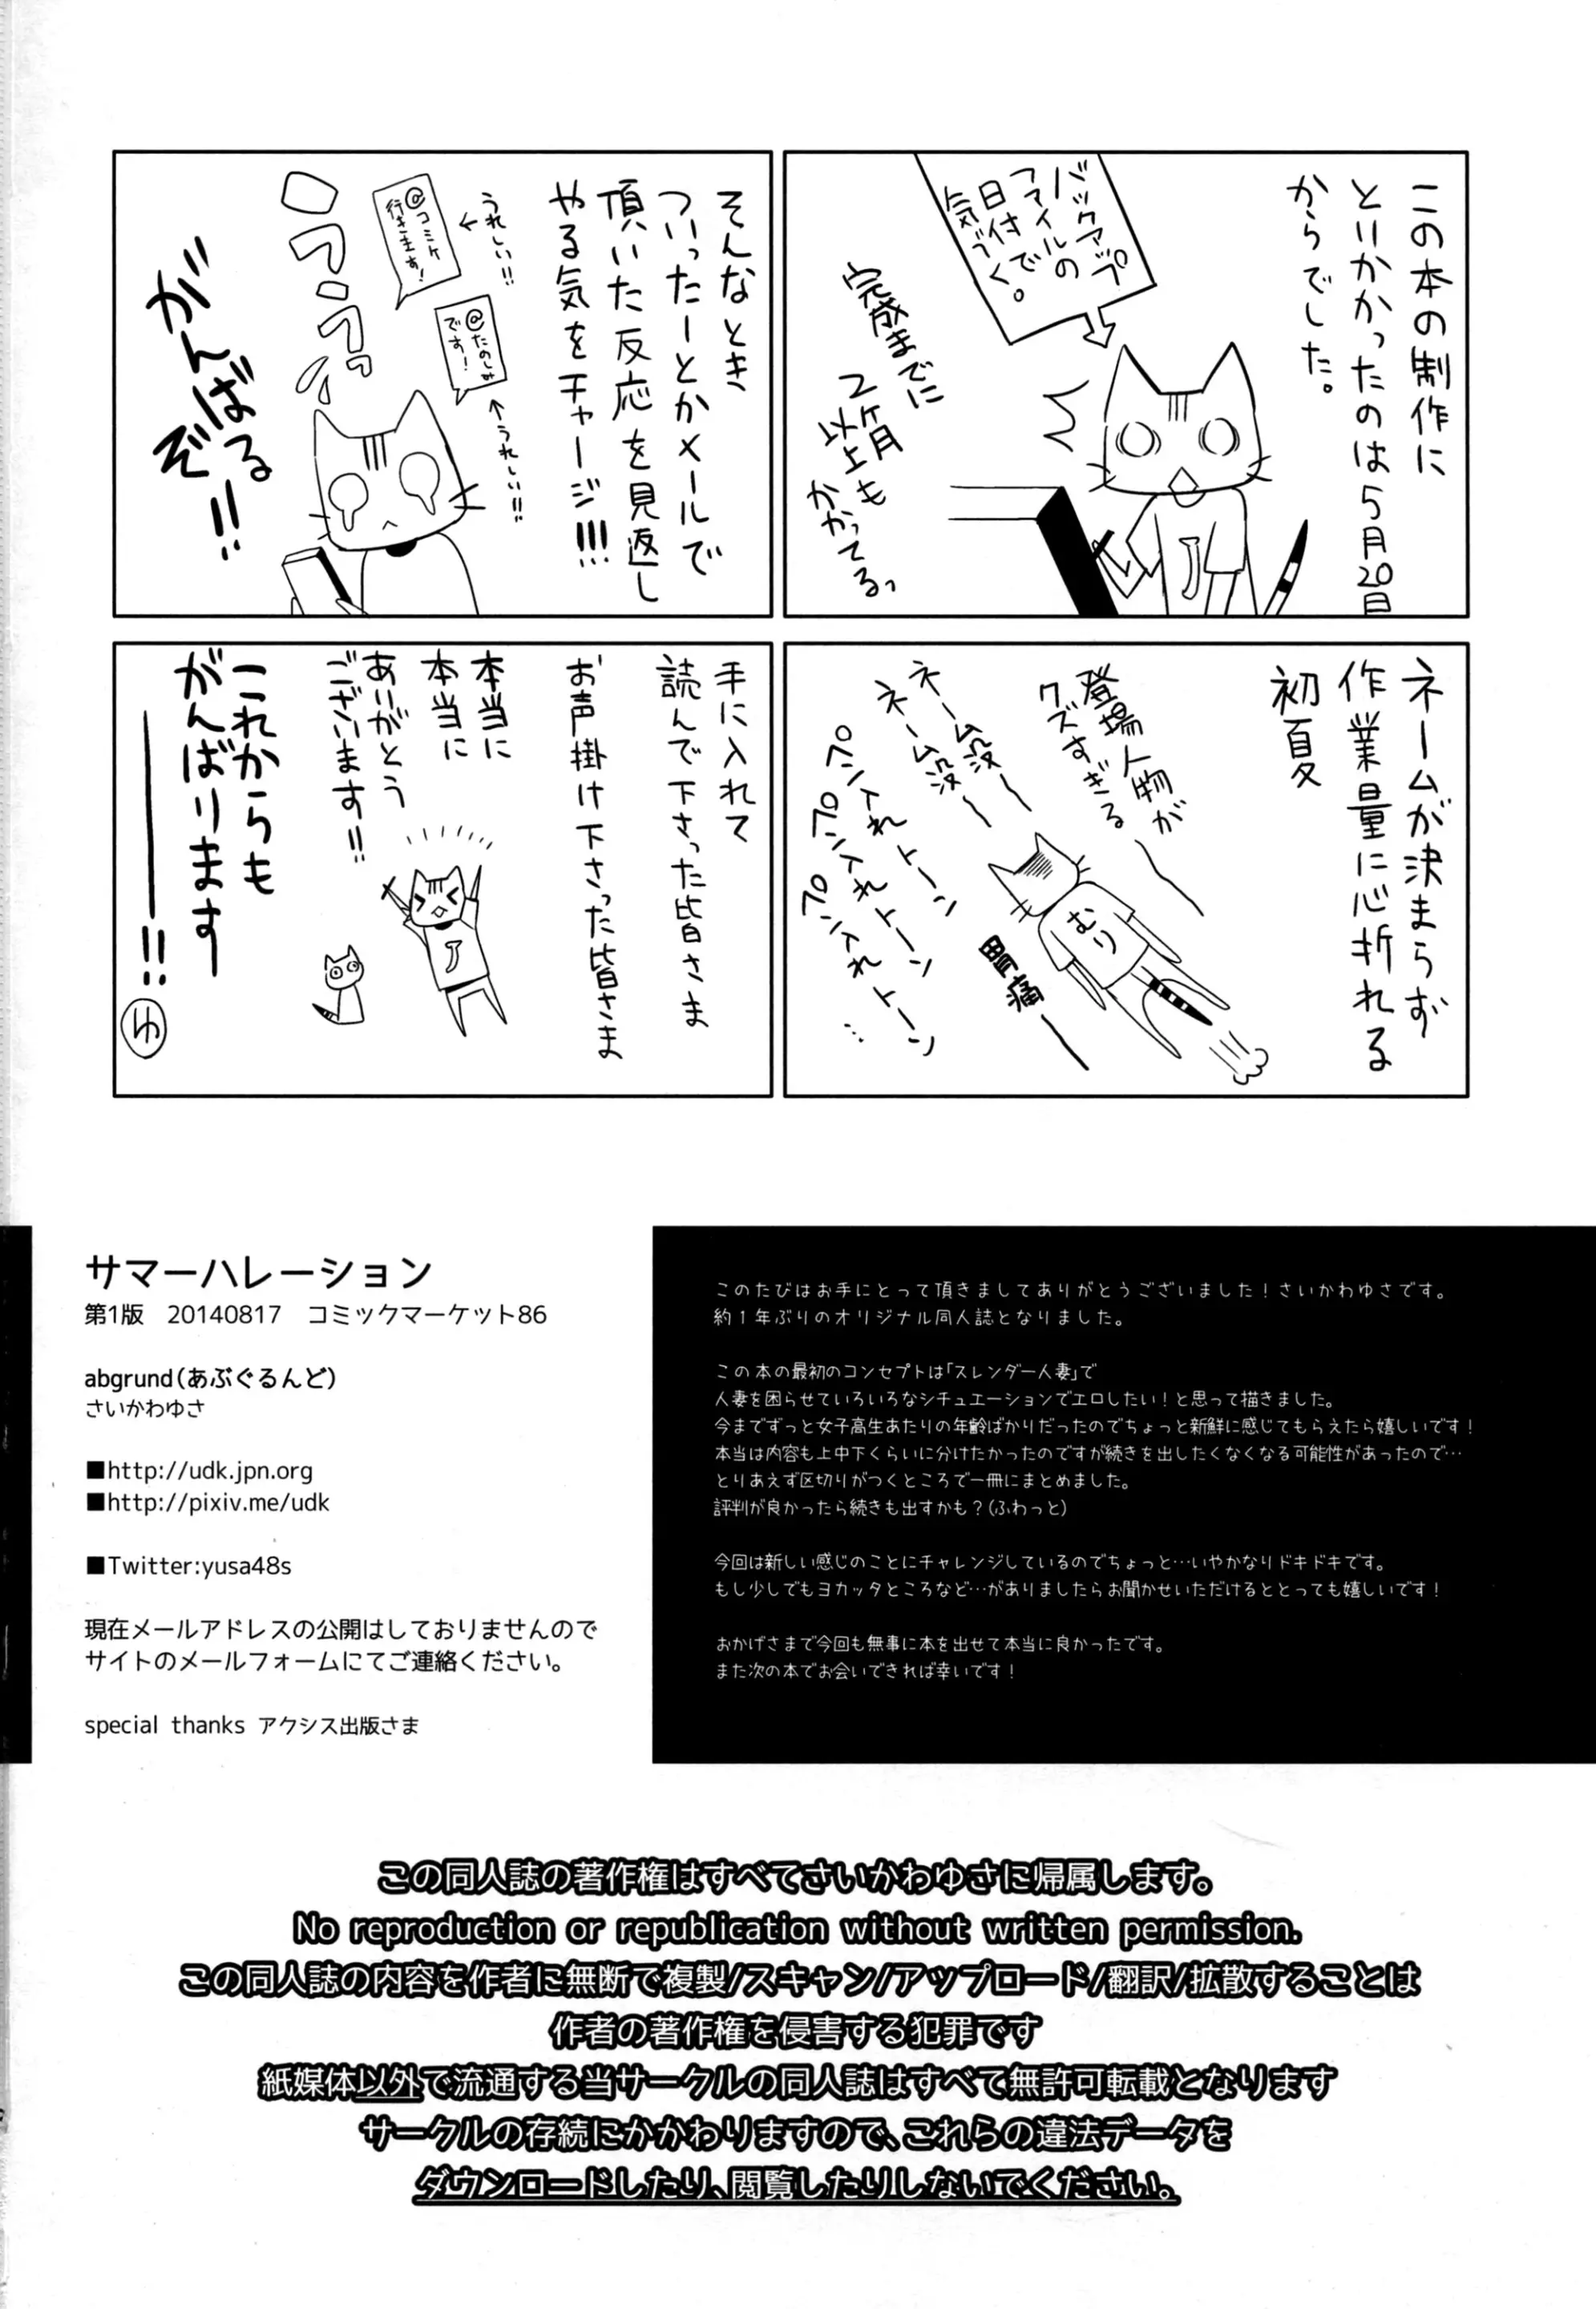 この本の制作に
とりかかったのは5月20日
からでした。
バックアップ
ファイルの
日付で
気づく。
完成までに
2ヶ月
以上も
かかってるっ
ネームが決まらず
作業量に心折れる
初夏
登場人物が
クズすぎる
ネーム没〜
ネーム没〜
ペン入れトーン
ペン入れトーン
ペン入れトーン
…
むり
胃痛
そんなとき
ついったーとかメールで
頂いた反応を見返し
やる気をチャージ!!!
うれしい!!
@コミケ
行きます!
@たのしみ
です!
うれしい!!
がんばる
ぞ!!
手に入れて
読んで下さった皆さま
お声掛け下さった皆さま
本当に
本当に
ありがとう
ございます!!
これからも
がんばります
――!!
ゆ
サマーハレーション
第1版　20140817　コミックマーケット86
abgrund(あぶぐるんど)
さいかわゆさ
■http://udk.jpn.org
■http://pixiv.me/udk
■Twitter:yusa48s
現在メールアドレスの公開はしておりませんので
サイトのメールフォームにてご連絡ください。
special thanks アクシス出版さま
このたびはお手にとって頂きましてありがとうございました！さいかわゆさです。
約１年ぶりのオリジナル同人誌となりました。
この本の最初のコンセプトは「スレンダー人妻」で
人妻を困らせていろいろなシチュエーションでエロしたい！と思って描きました。
今までずっと女子高生あたりの年齢ばかりだったのでちょっと新鮮に感じてもらえたら嬉しいです！
本当は内容も上中下くらいに分けたかったのですが続きを出したくなくなる可能性があったので…
とりあえず区切りがつくところで一冊にまとめました。
評判が良かったら続きも出すかも？(ふわっと)
今回は新しい感じのことにチャレンジしているのでちょっと…いやかなりドキドキです。
もし少しでもヨカッタところなど…がありましたらお聞かせいただけるととっても嬉しいです！
おかげさまで今回も無事に本を出せて本当に良かったです。
また次の本でお会いできれば幸いです！
この同人誌の著作権はすべてさいかわゆさに帰属します。
No reproduction or republication without written permission.
この同人誌の内容を作者に無断で複製/スキャン/アップロード/翻訳/拡散することは
作者の著作権を侵害する犯罪です
紙媒体以外で流通する当サークルの同人誌はすべて無許可転載となります
サークルの存続にかかわりますので、これらの違法データを
ダウンロードしたり、閲覧したりしないでください。